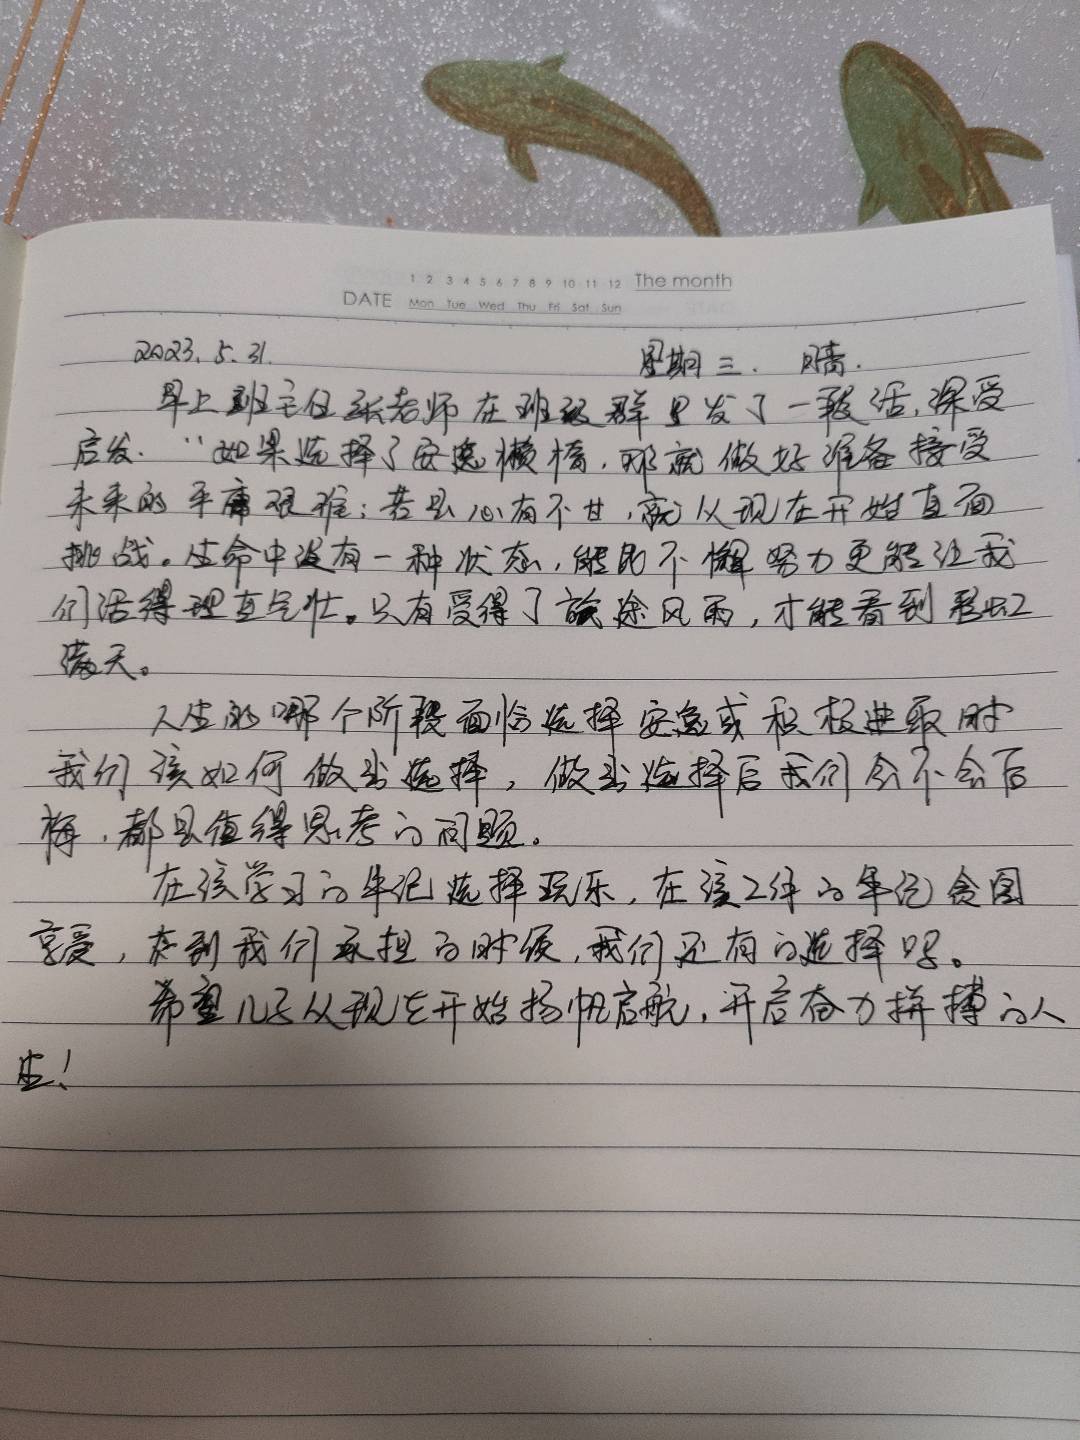 1 2 3 4 5 6 7 8 9 10 11 12 The month
DATE Mon Tue Wed Thu Fri Sat Sun
2023.5.31. 星期三. 晴.
早上班主任张老师在班级群里发了一段话,深受
启发. “如果选择了安逸懒惰,那就做好准备接受
未来的平庸艰难;若是心有不甘,就从现在开始直面
挑战。生命中没有一种状态,能比不懈努力更能让我
们活得理直气壮。只有受得了旅途风雨,才能看到彩虹
满天。
人生的哪个阶段面临选择安逸或积极进取时
我们该如何做出选择,做出选择后我们会不会后
悔,都是值得思考的问题。
在该学习的年纪选择玩乐,在该工作的年纪贪图
享受,来到我们承担的时候,我们还有的选择吗。
希望儿子从现在开始扬帆启航,开启奋力拼搏的人
生!